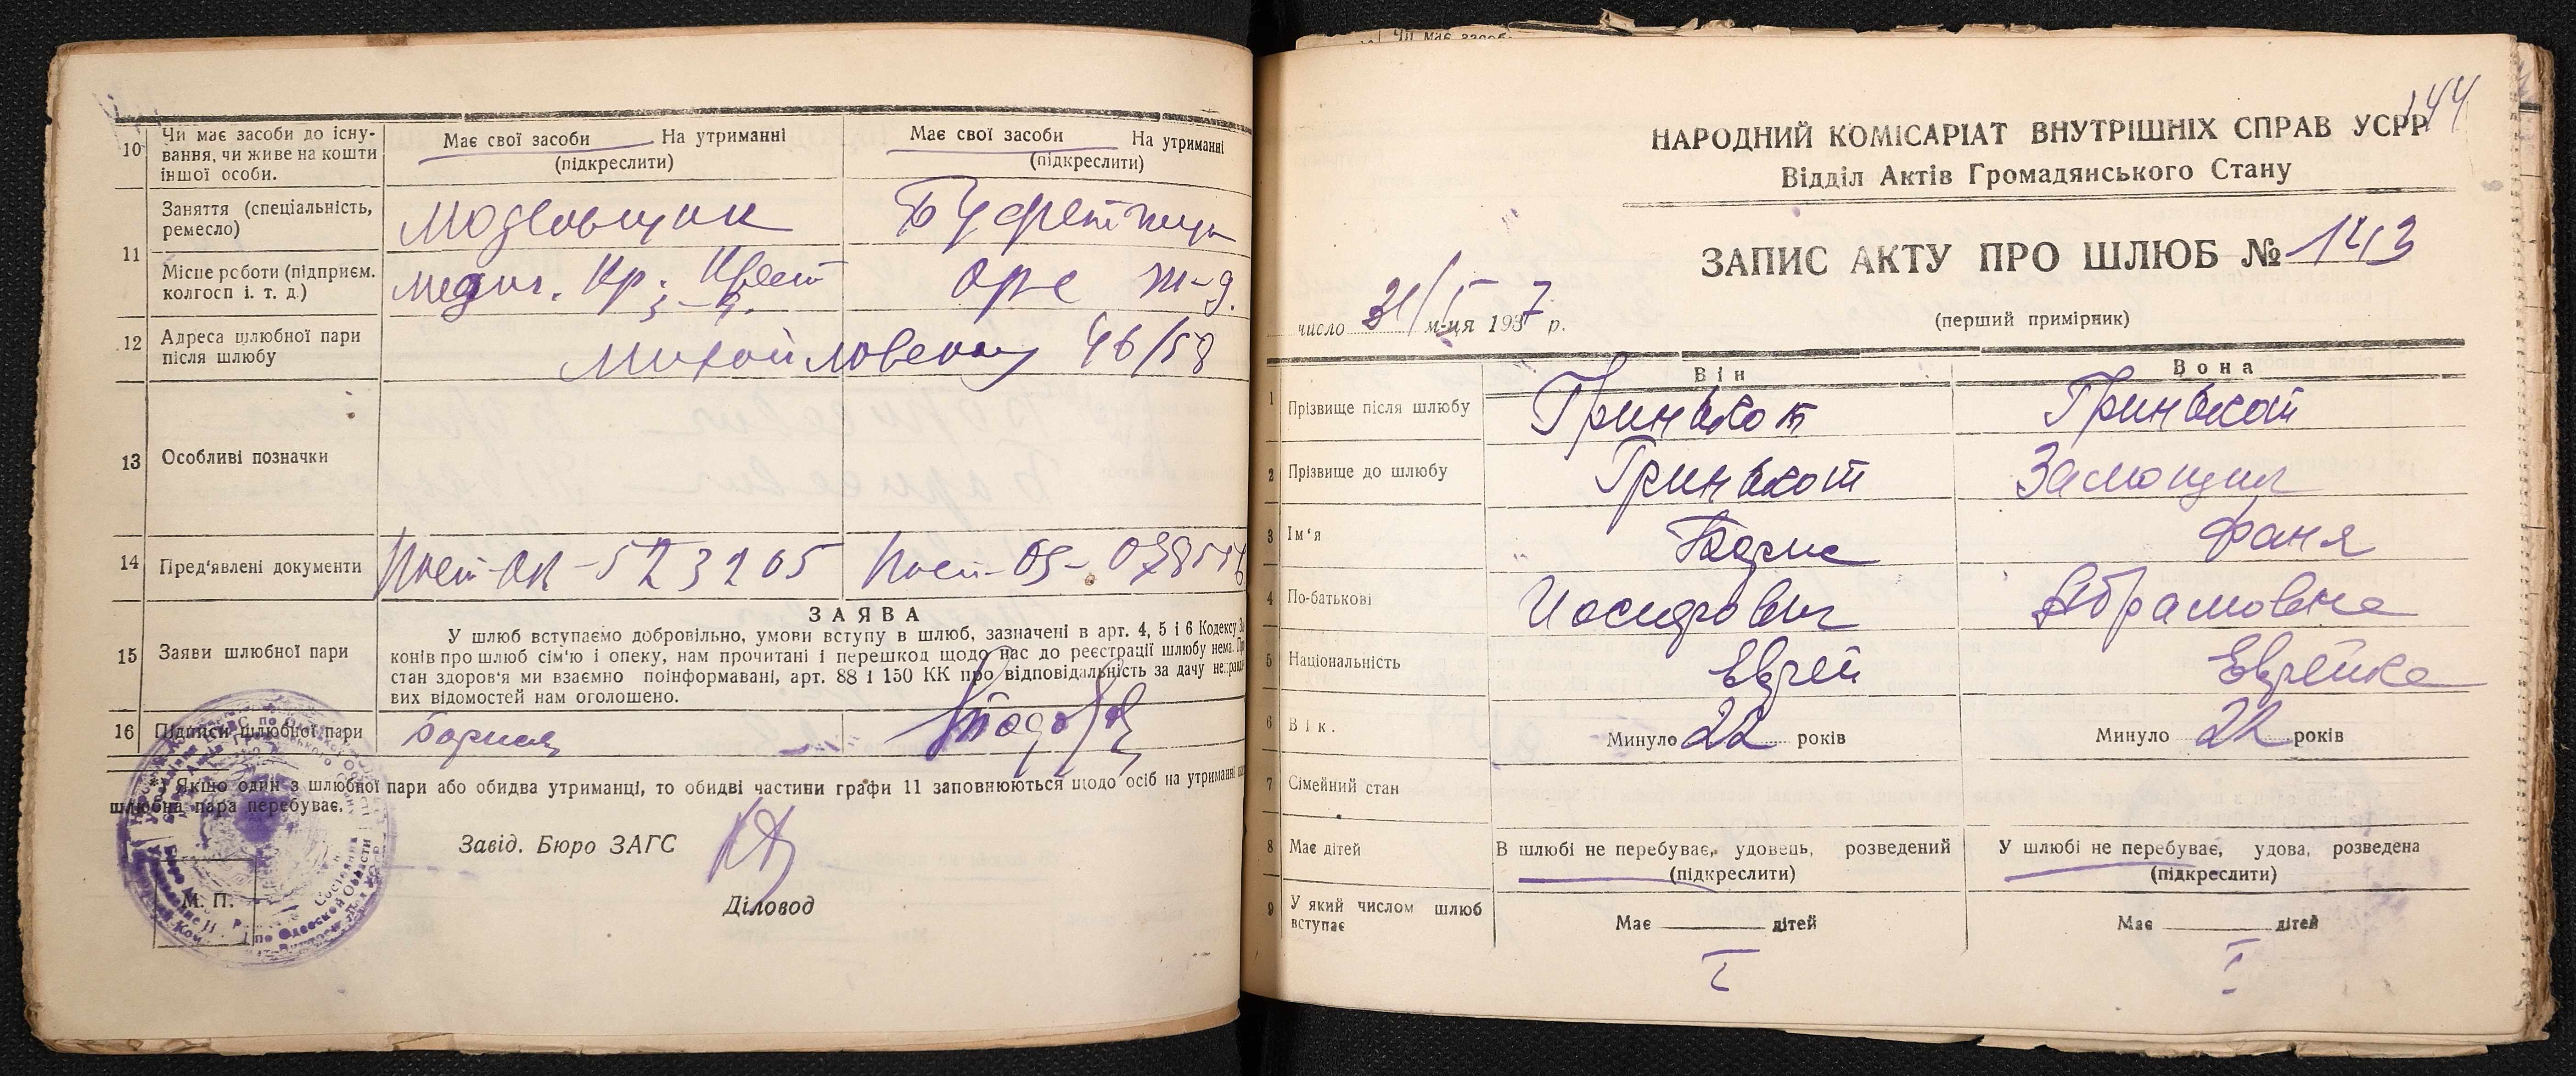 10
Чи має засоби до існу-
вання, чи живе на кошти
іншої особи.
Має свої засоби На утриманні
(підкреслити)
Має свої засоби На утриманні
(підкреслити)
11
Заняття (спеціальність,
ремесло)
Модельщик
Буфетчица
Місце роботи (підприєм.
колгосп і. т. д.)
Орс ж-д.
12
Адреса шлюбної пари
після шлюбу
46/58
13
Особливі позначки
14
Пред'явлені документи
523205
15
Заяви шлюбної пари
ЗАЯВА
У шлюб вступаємо добровільно, умови вступу в шлюб, зазначені в арт. 4, 5 і 6 Кодексу За
конів про шлюб сім'ю і опеку, нам прочитані і перешкод щодо нас до реєстрації шлюбу нема. Пр
стан здоров'я ми взаємно поінформавані, арт. 88 і 150 КК про відповідальність за дачу неправд
вих відомостей нам оголошено.
16
Підписи шлюбної пари
Якщо один з шлюбної пари або обидва утриманці, то обидві частини графи 11 заповнюються щодо осіб на утриманні
шлюбна пара перебуває.
Завід. Бюро ЗАГС
М. П.
Діловод
144
НАРОДНИЙ КОМІСАРІАТ ВНУТРІШНІХ СПРАВ УСРР
Відділ Актів Громадянського Стану
ЗАПИС АКТУ ПРО ШЛЮБ № 143
число 31/I м-ця 1937 р.
(перший примірник)
Він
Вона
1
Прізвище після шлюбу
Гриншкот
Гриншкот
2
Прізвище до шлюбу
Гриншкот
3
Ім'я
Борис
Фаня
4
По-батькові
Иосифович
Абрамовна
5
Національність
Еврей
Еврейка
6
Вік.
Минуло 22 років
Минуло 22 років
7
Сімейний стан
8
Має дітей
В шлюбі не перебуває, удовець, розведений
(підкреслити)
У шлюбі не перебуває, удова, розведена
(підкреслити)
9
У який числом шлюб
вступає
Має дітей
Має дітей
I
I